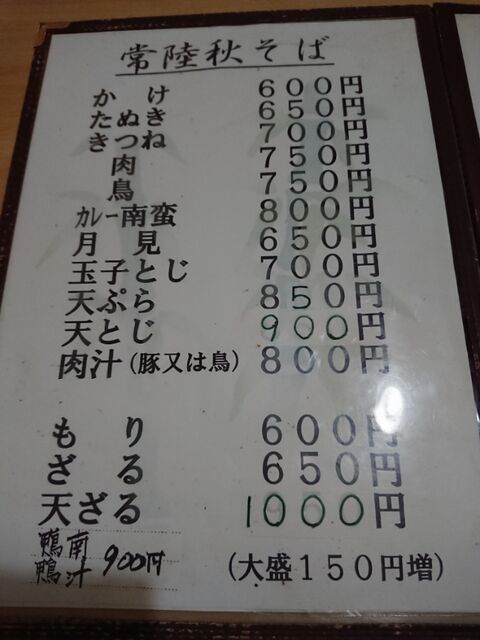 常陸秋そば
かけ 600円
たぬき 650円
きつね 700円
肉 750円
鳥 750円
カレー南蛮 800円
月見 650円
玉子とじ 700円
天ぷら 850円
天とじ 900円
肉汁(豚又は鳥) 800円
もり 600円
ざる 650円
天ざる 1000円
鴨南
鴨汁 900円
(大盛150円増)